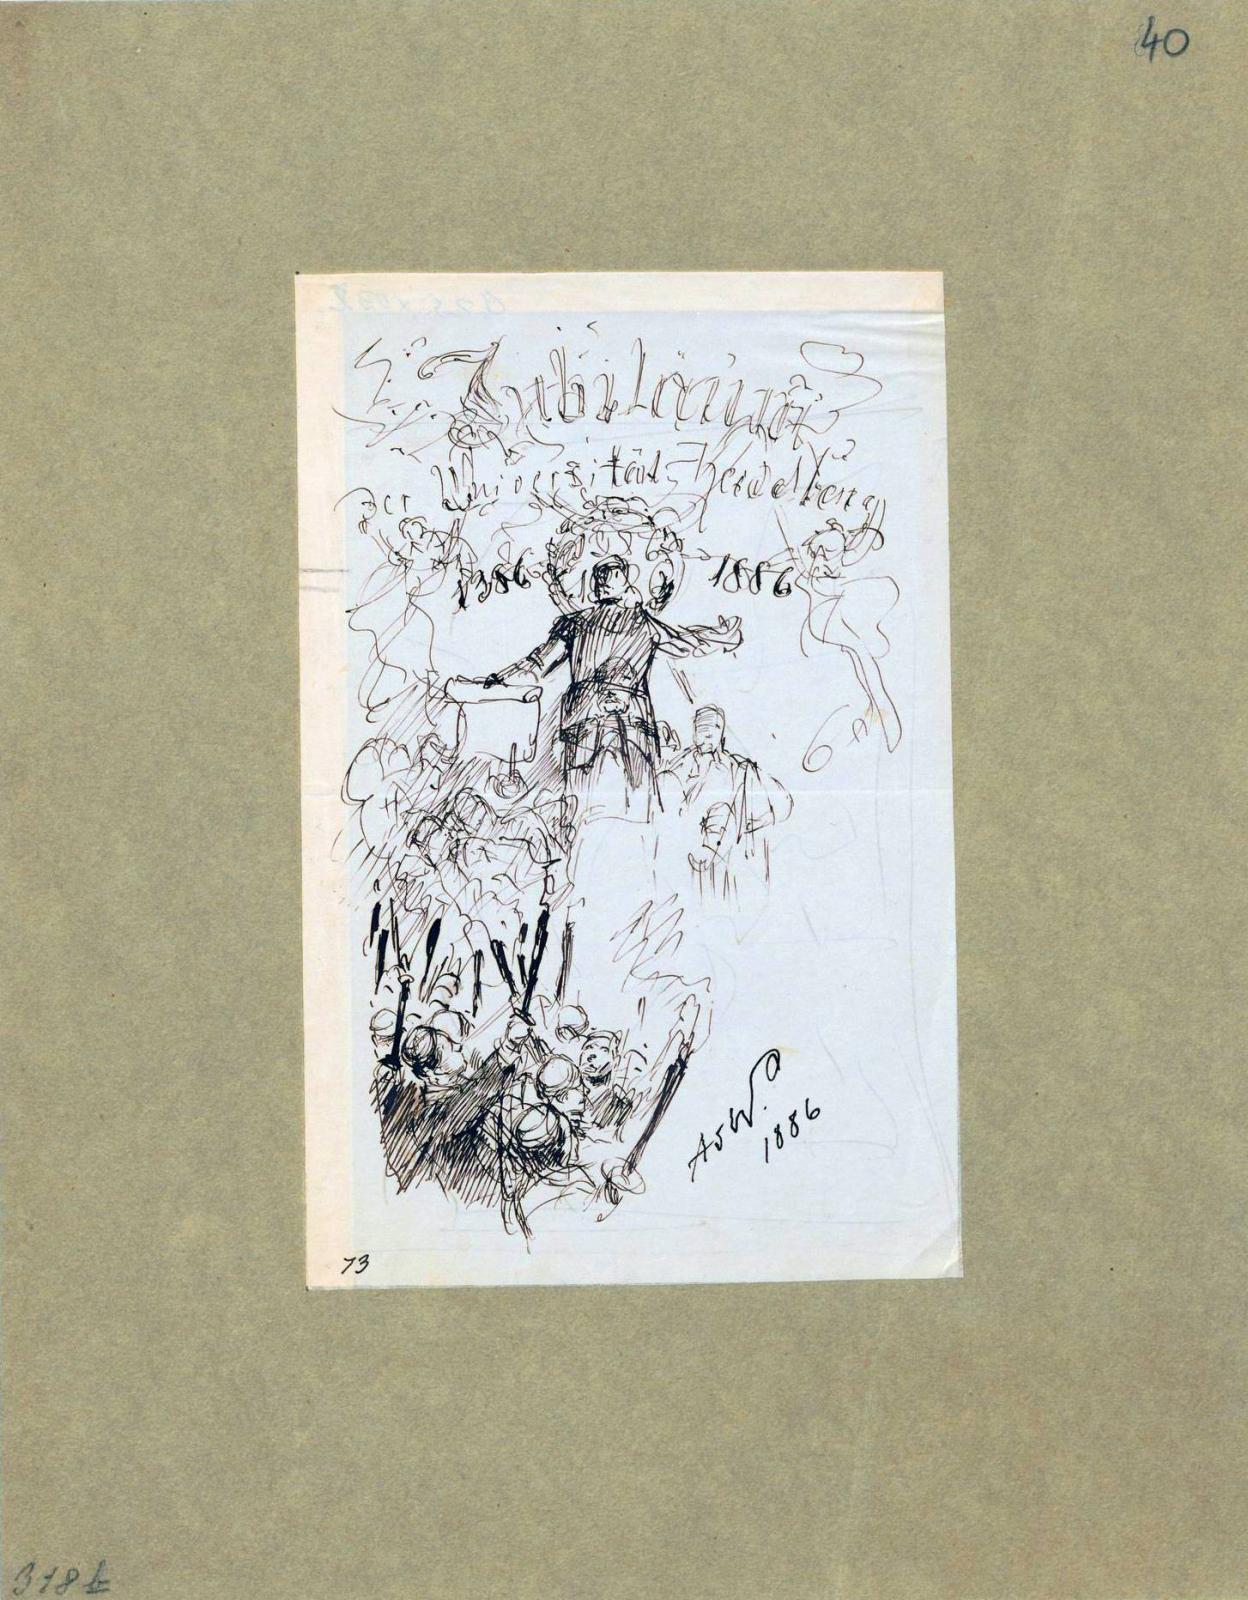 40
Jubiläum
der Universität Heidelberg
1386 1886
AvW.
1886
73
318